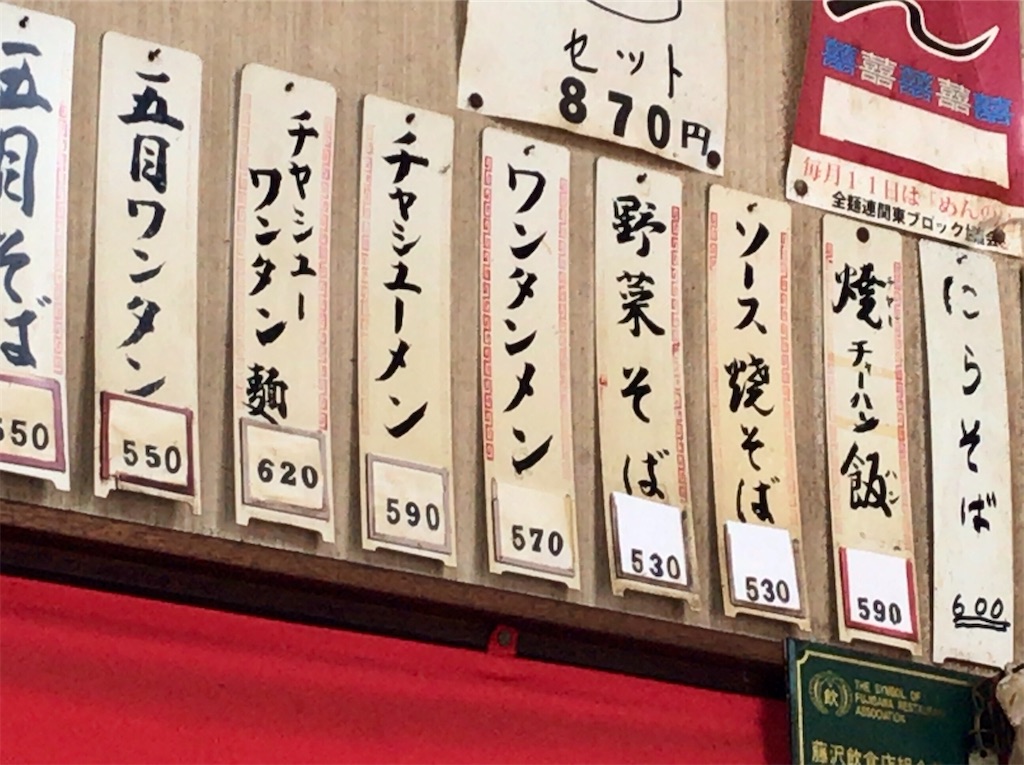 セット
870円
毎月11日は「めんの
全麺連関東ブロック協議会
五目そば
550
五目ワンタン
550
チャシュー
ワンタン麺
620
チャシューメン
590
ワンタンメン
570
野菜そば
530
ソース焼そば
530
焼飯
チャーハン
590
にらそば
600
THE SYMBOL OF
FUJISAWA RESTAURANT
ASSOCIATION
飲
藤沢飲食店組合